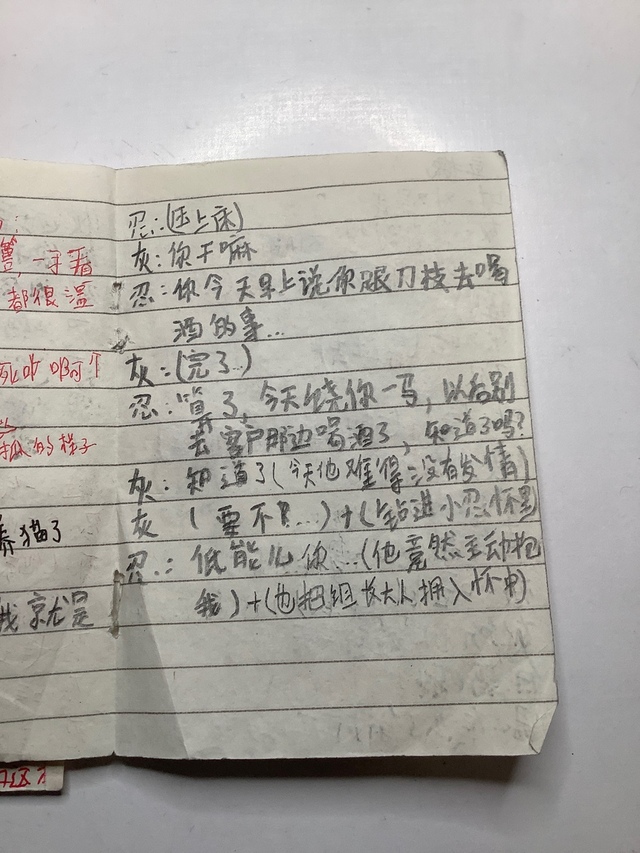 一手着
都很温
死吖啊个
孤的样子
养猫了
我就是
忍:(压上床)
灰:你干嘛
忍:你今天早上说你跟刀枝去喝
酒的事...
灰:(完了..)
忍:算了,今天饶你一马,以后别
去客户那边喝酒了,知道了吗?
灰:知道了(今天他难得没有发情)
灰(要不?...)+(钻进小忍怀里)
忍:低能儿你...(他竟然主动抱
我)+(也把组长大人拥入怀中)